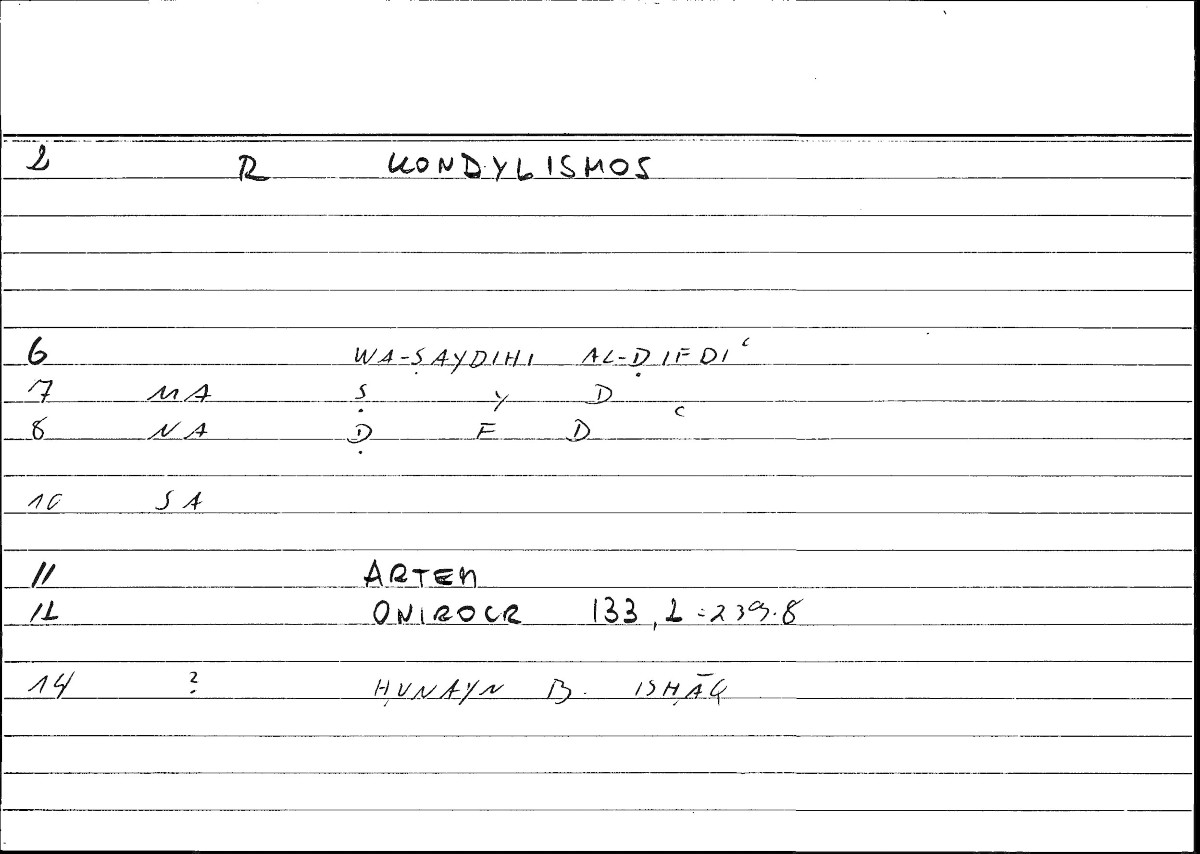 2 R KONDYLISMOS
6 WA-ṢAYDIHI AL-ḌIFDIʿ
7 MA Ṣ Y D
8 NA Ḍ F D ʿ
10 SA
11 ARTEM
12 ONIROCR 133,2 = 239.8
14 ? ḤUNAYN B. ISḤĀQ